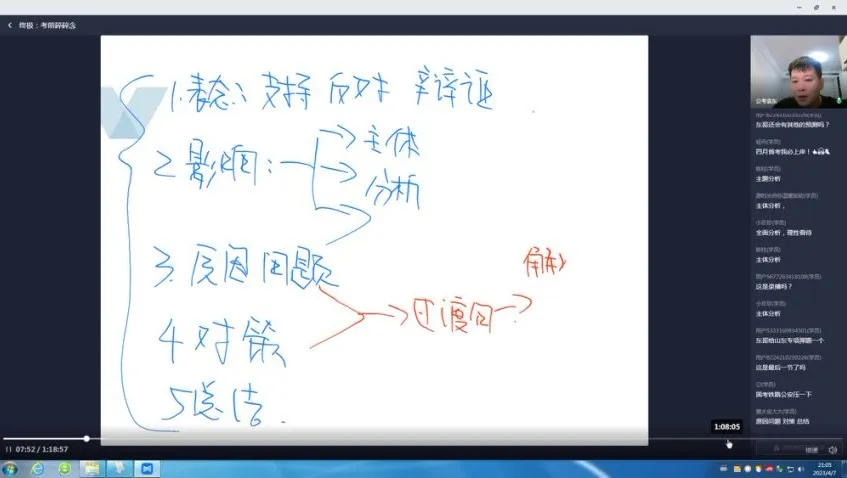 终极：考前碎碎念
1.表态：支持 反对 辩证
2.影响：
主体
分析
3.原因问题
4 对策
5总结.
过渡句
解
公考袁东
东哥还会有其他的预测吗？
四月省考我必上岸！
主题分析
主体分析，
全面分析，理性看待
主体分析
这是录播吗？
主体分析
东哥给山东专项押题一个
这是最后一节了吗
国考铁路公安压一下
原因问题 对策 总结
1:08:05
07:52 / 1:18:57
倍速
21:05
2023/4/7